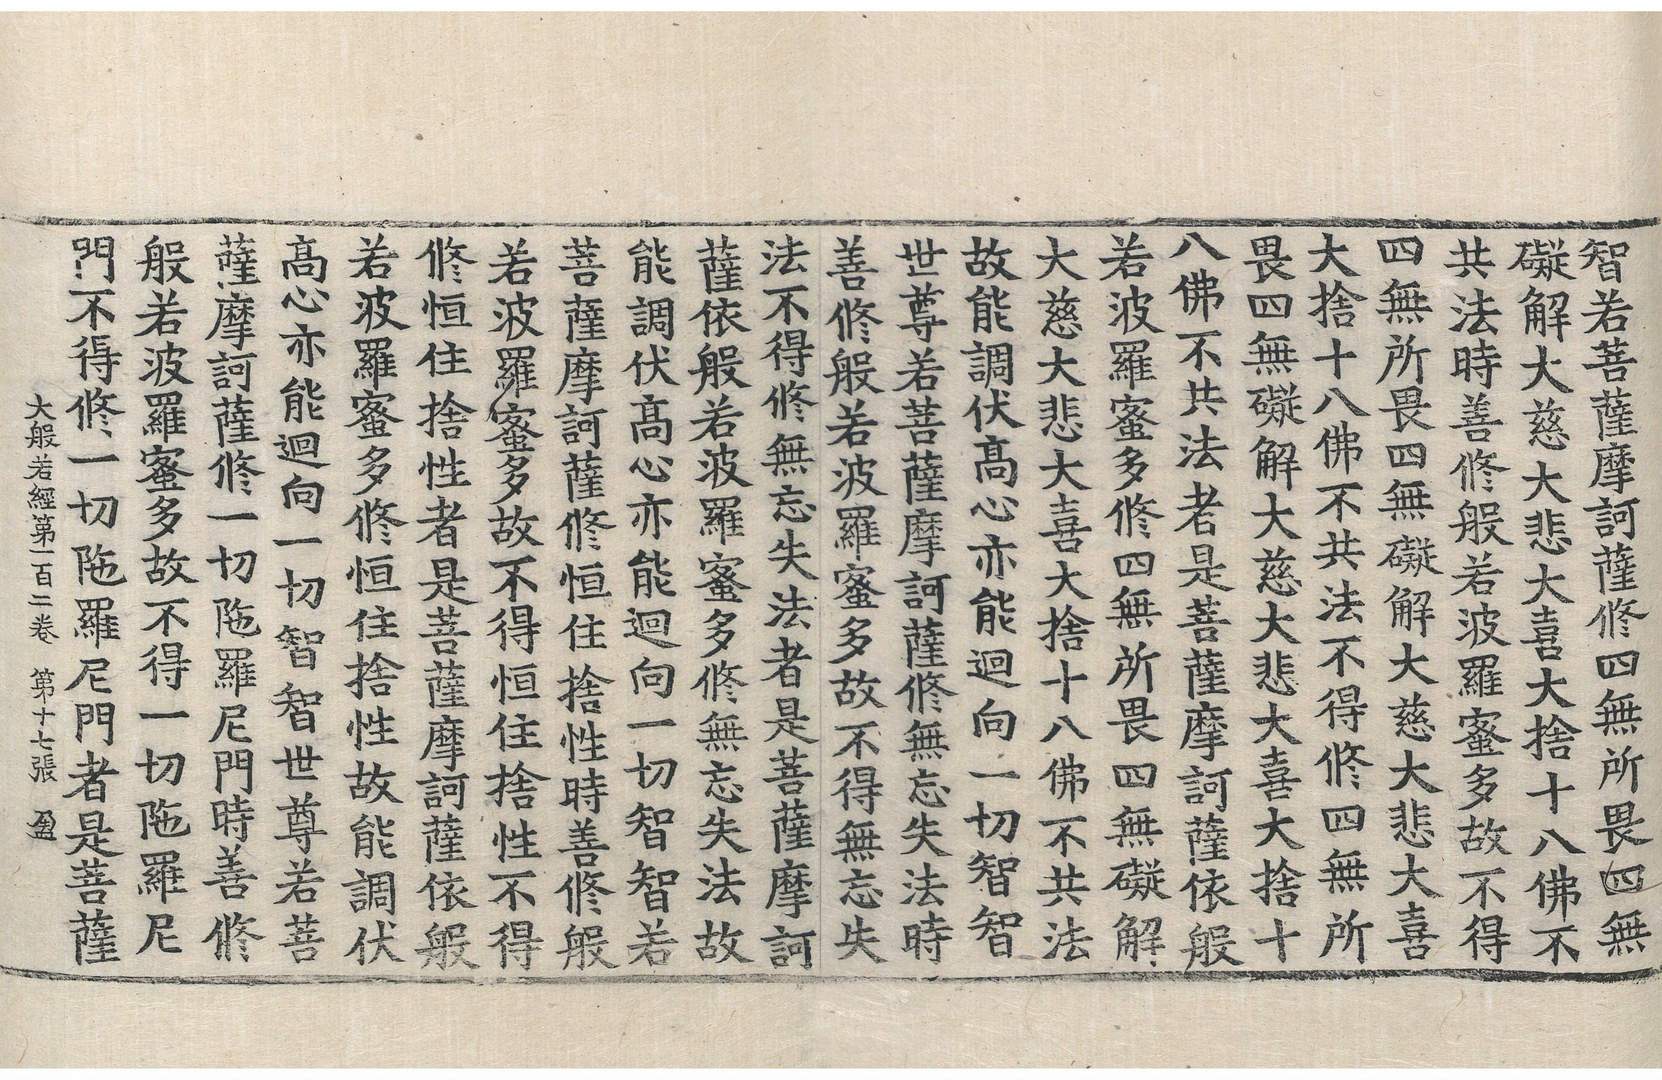 智若菩薩摩訶薩修四無所畏四無
礙解大慈大悲大喜大捨十八佛不
共法時善修般若波羅蜜多故不得
四無所畏四無礙解大慈大悲大喜
大捨十八佛不共法不得修四無所
畏四無礙解大慈大悲大喜大捨十
八佛不共法者是菩薩摩訶薩依般
若波羅蜜多修四無所畏四無礙解
大慈大悲大喜大捨十八佛不共法
故能調伏髙心亦能迴向一切智智
世尊若菩薩摩訶薩修無忘失法時
善修般若波羅蜜多故不得無忘失
法不得修無忘失法者是菩薩摩訶
薩依般若波羅蜜多修無忘失法故
能調伏髙心亦能迴向一切智智若
菩薩摩訶薩修恒住捨性時善修般
若波羅蜜多故不得恒住捨性不得
修恒住捨性者是菩薩摩訶薩依般
若波羅蜜多修恒住捨性故能調伏
髙心亦能迴向一切智智世尊若菩
薩摩訶薩修一切陁羅尼門時善修
般若波羅蜜多故不得一切陁羅尼
門不得修一切陁羅尼門者是菩薩
大般若經第一百二卷 第十七張 盈